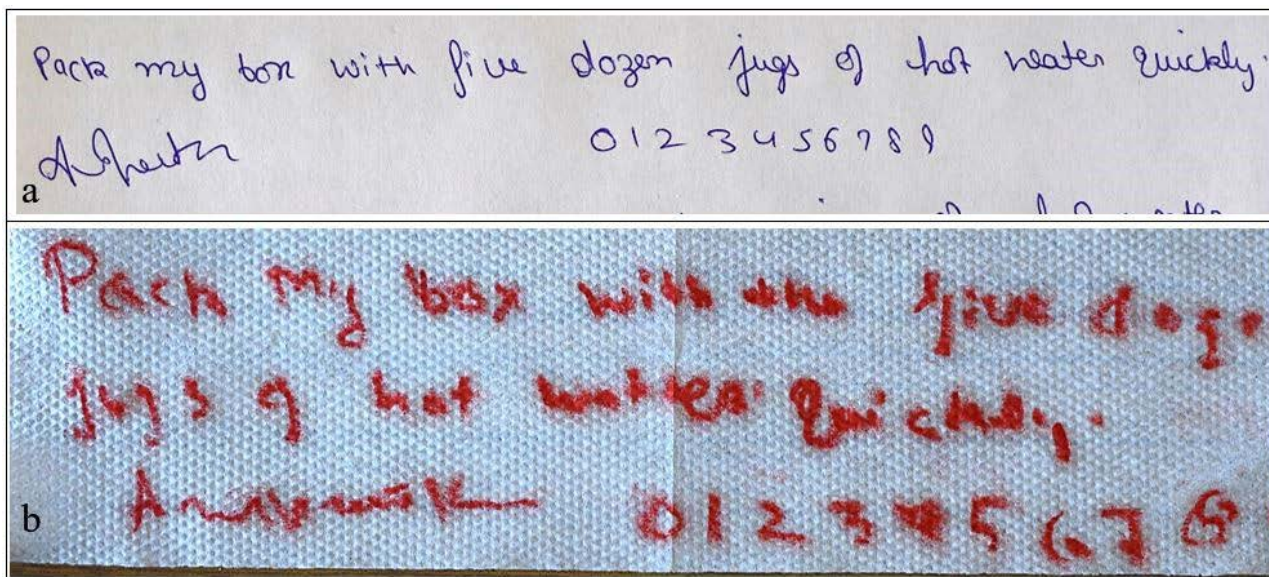 Pack my box with five dozen jugs of hot water quickly.
0 1 2 3 4 5 6 7 8 9
a
Pack my box with five
jugs of hot water quickly.
0 1 2 3 4 5 6 7 8
b